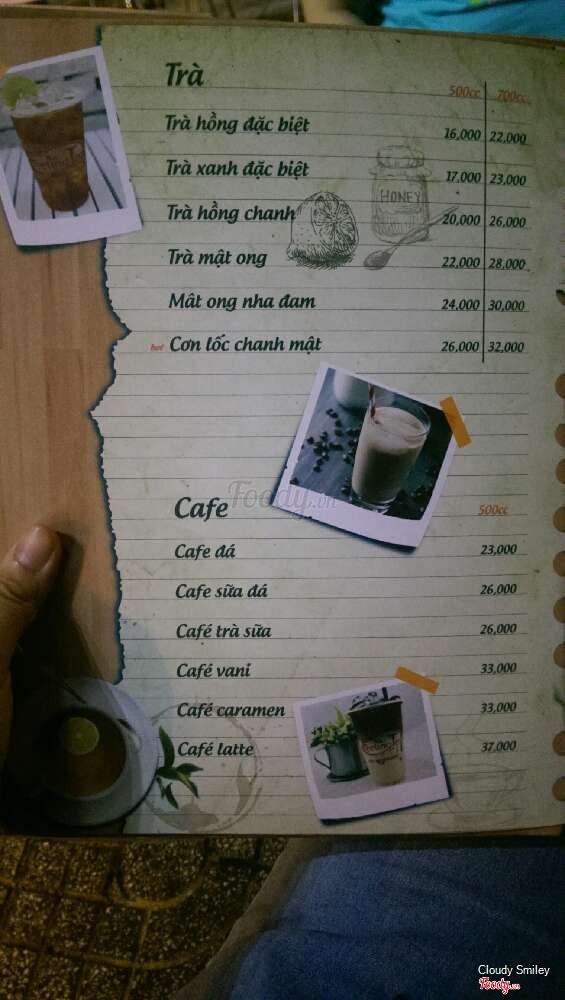 Trà 500cc 700cc
Trà hồng đặc biệt 16,000 22,000
Trà xanh đặc biệt 17,000 23,000
HONEY
Trà hồng chanh 20,000 26,000
Trà mật ong 22,000 28,000
Mât ong nha đam 24,000 30,000
hot Cơn lốc chanh mật 26,000 32,000
Foody.vn
Cafe 500cc
Cafe đá 23,000
Cafe sữa đá 26,000
Café trà sữa 26,000
Café vani 33,000
Café caramen 33,000
Café latte 37,000
Cloudy Smiley
Foody.vn